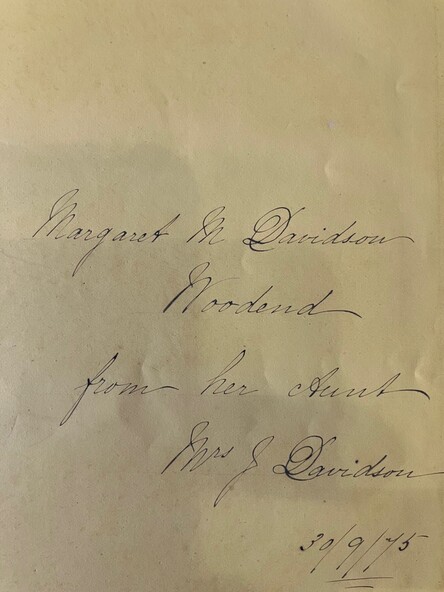 Margaret M Davidson
Woodend
from her Aunt
Mrs J Davidson
30/9/75